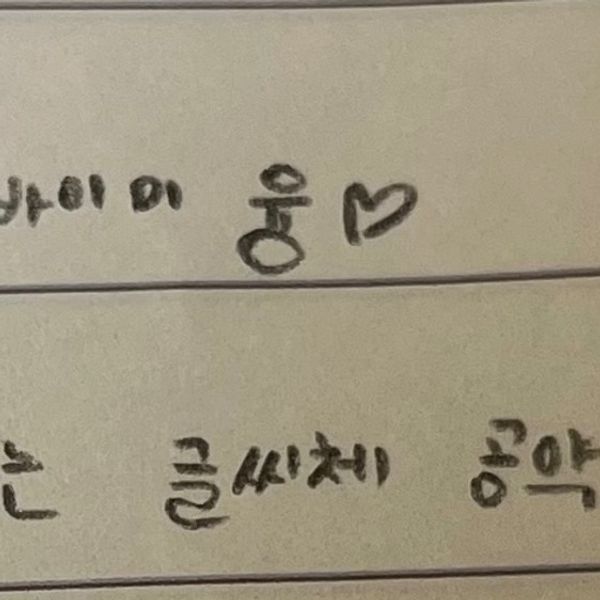 바이미 웅♡
는 글씨체 공약